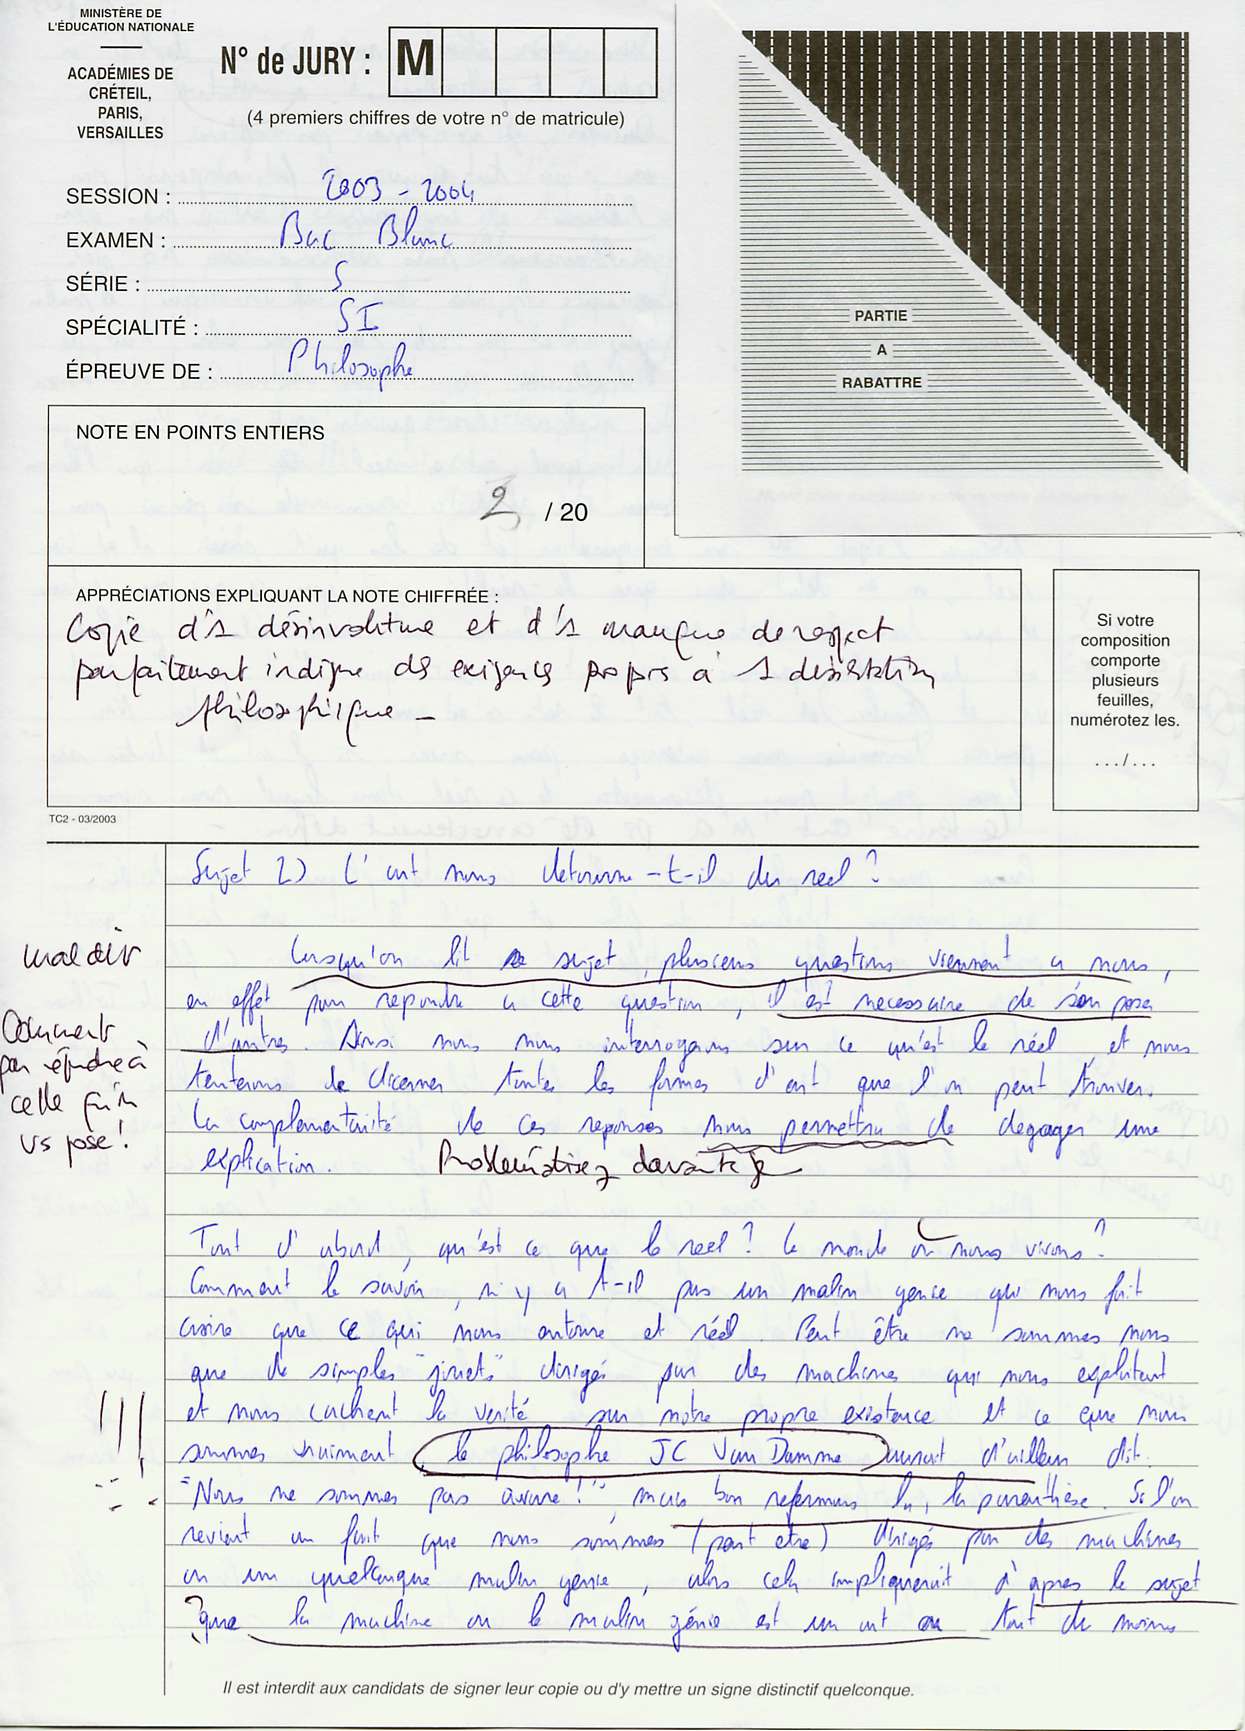 MINISTÈRE DE
L'ÉDUCATION NATIONALE
ACADÉMIES DE
CRÉTEIL,
PARIS,
VERSAILLES
N° de JURY : M
(4 premiers chiffres de votre n° de matricule)
SESSION : 2003 - 2004
EXAMEN : Bac Blanc
SÉRIE : S
SPÉCIALITÉ : SI
ÉPREUVE DE : Philosophe
PARTIE
A
RABATTRE
NOTE EN POINTS ENTIERS
2 / 20
APPRÉCIATIONS EXPLIQUANT LA NOTE CHIFFRÉE :
Copie d'1 désinvolture et d'1 manque de respect
parfaitement indigne des exigences propres à 1 dissertation
philosophique -
Si votre
composition
comporte
plusieurs
feuilles,
numérotez les.
. . . / . . .
TC2 - 03/2003
Sujet 2) L'art nous detourne-t-il du reel ?
mal dit
Lorsqu'on lit ce sujet, plusieurs questions viennent a nous,
en effet pour repondre a cette question, il est necessaire de s'en poser
d'autres. Ainsi nous nous interrogeons sur ce qu'est le réel, et nous
Comment
par répondre à
celle qu'on
vs pose !
tenterons de dicerner toutes les formes d'art que l'on peut trouver.
La complementarité de ces reponses nous permettra de degager une
explication. Problématisez davantage
Tout d'abord, qu'est ce que le reel ? Le monde où nous vivons ?
Comment le savoir, n'y a t-il pas un malin genie qui nous fait
croire que ce qui nous entoure est réel. Peut être ne sommes nous
que de simples "jouets" dirigés par des machines qui nous exploitent
et nous cachent la verité sur notre propre existence et ce que nous
!!!
sommes vraiment, le philosophe JC Van Damme aurait d'ailleurs dit.
"Nous ne sommes pas aware !" mais bon refermons la, la parenthèse. Si l'on
revient au fait que nous sommes (peut etre) dirigés par des machines
ou un quelconque malin genie, alors cela impliquerait d'apres le sujet
? que la machine ou le malin génie est un art ou tout du moins
Il est interdit aux candidats de signer leur copie ou d'y mettre un signe distinctif quelconque.